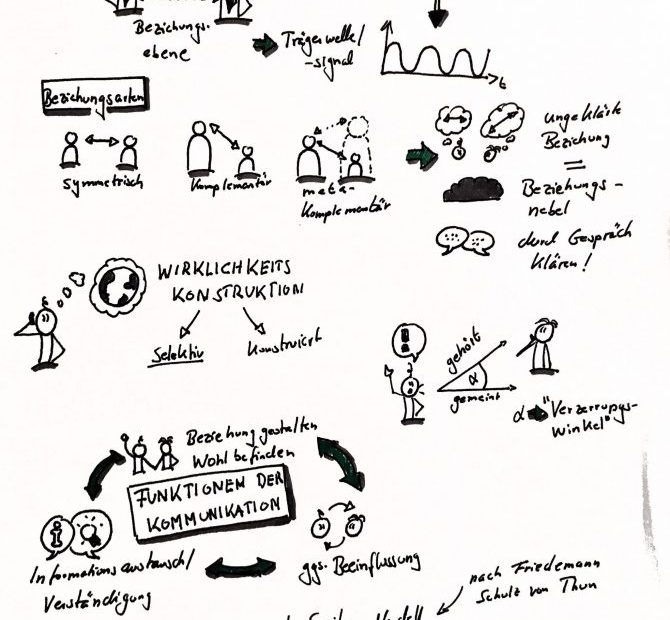 Beziehungs-
ebene
Trägerwelle/
-signal
t
Beziehungsarten
symmetrisch
Komplementär
meta-
Komplementär
ungeklärte
Beziehung
=
Beziehungs-
nebel
durch Gespräch
klären!
WIRKLICHKEITS
KONSTRUKTION
Selektiv
Konstruiert
!
gehört
α
gemeint
α "Verzerrungs-
winkel"
Beziehung gestalten
Wohlbefinden
FUNKTIONEN DER
KOMMUNIKATION
i
Informationsaustausch/
Verständigung
ggs. Beeinflussung
nach Friedemann
Schulz von Thun